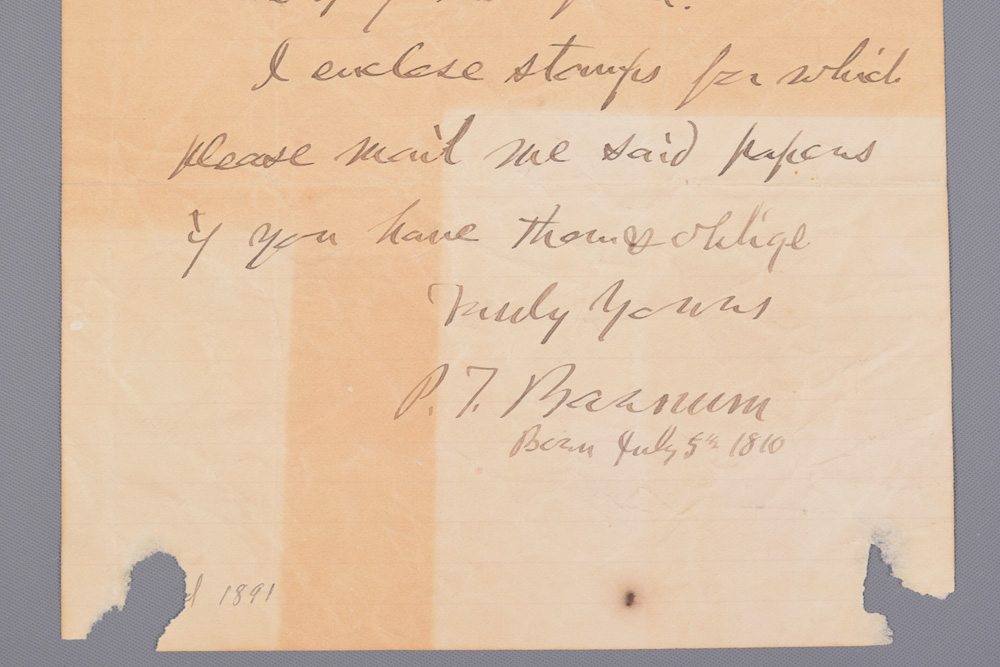 I enclose stamps for which
please mail me said papers
if you have them & oblige
Truly Yours
P. T. Barnum
Born July 5th 1810
d 1891